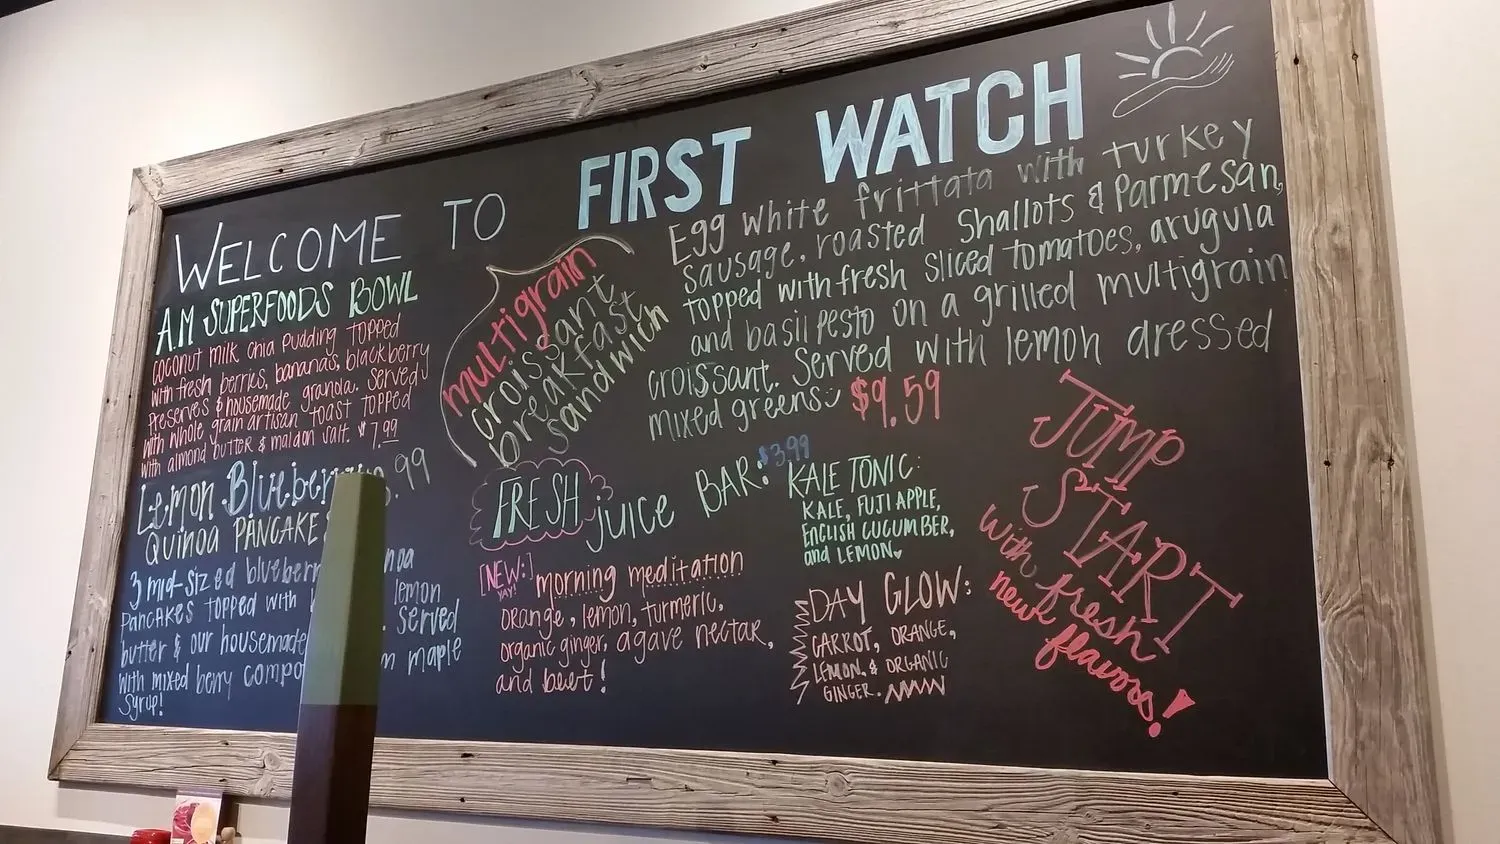 WELCOME TO FIRST WATCH
A.M SUPERFOODS BOWL
coconut milk chia pudding topped
with fresh berries, bananas, blackberry
preserves & housemade granola. Served
with whole grain artisan toast topped
with almond butter & maldon salt. $7.99
Lemon Blueberr .99
Quinoa PANCAKE
3 mid-sized blueberr noa
PancAkes topped with lemon
butter & our housemade . Served
with mixed berry compo m maple
Syrup!
multigrain
croissant
breakfast
sandwich
Egg white frittata with turkey
sausage, roasted Shallots & Parmesan,
topped with fresh sliced tomatoes, arugula
and basil pesto on a grilled multigrain
croissant. Served with lemon dressed
mixed greens $9.59
FRESH juice BAR: $3.99
[NEW:] morning meditation
YAY!
orange, lemon, turmeric,
organic ginger, agave nectar,
and beet!
KALE TONIC:
KALE, FUJI APPLE,
ENGLISH CUCUMBER,
and LEMON
DAY GLOW:
CARROT, ORANGE,
LEMON, & ORGANIC
GINGER.
JUMP
START
with fresh
new flavors!